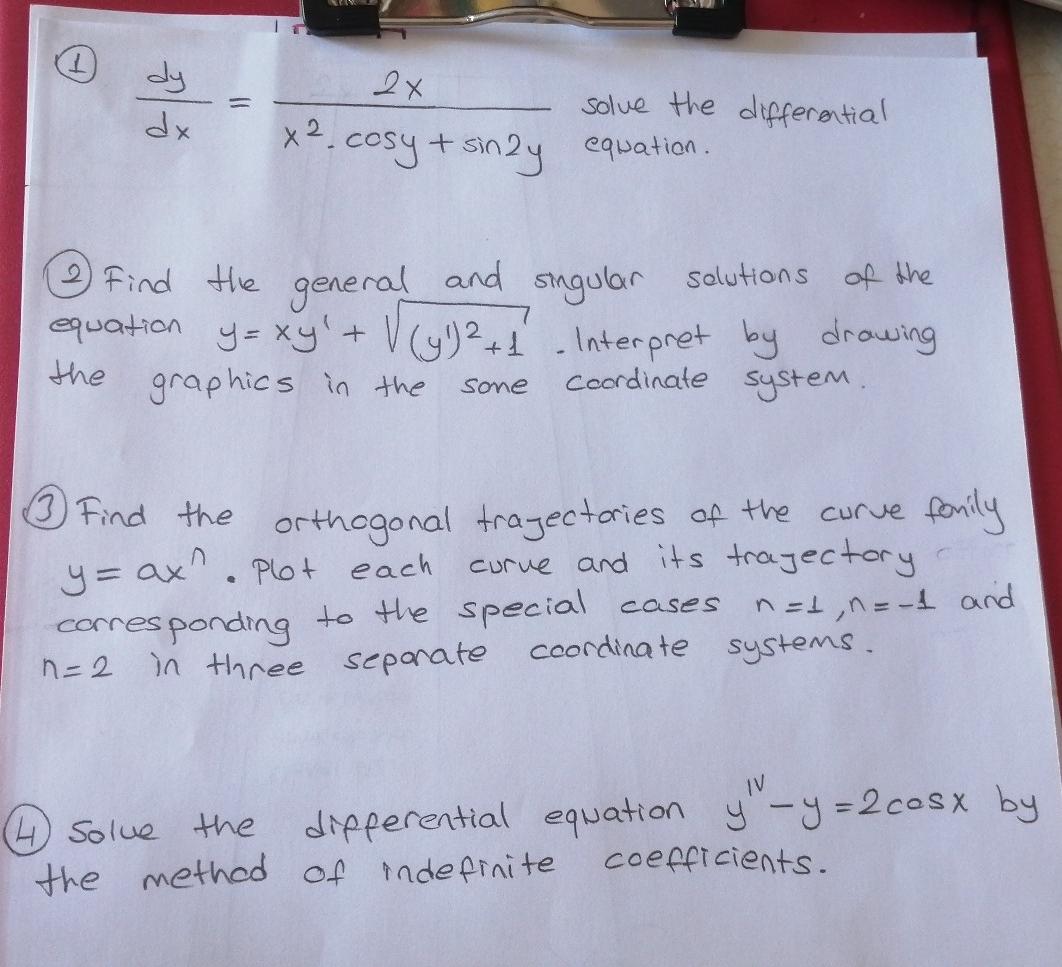 ① dy/dx = 2x / (x². cosy + sin2y) solve the differential
equation.
② Find the general and singular solutions of the
equation y = xy' + √((y')²+1) . Interpret by drawing
the graphics in the some coordinate system.
③ Find the orthogonal trajectories of the curve family
y = axⁿ. Plot each curve and its trajectory
corresponding to the special cases n=1, n=-1 and
n=2 in three separate coordinate systems.
④ Solve the differential equation yᴵⱽ - y = 2cosx by
the method of indefinite coefficients.